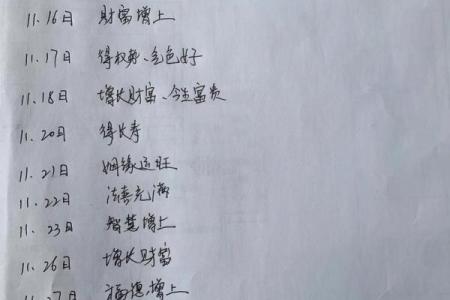 11.16日 财富增上
11.17日 得权势、气色好
11.18日 增长财富、今生富贵
11.20日 得长寿
11.21日 姻缘运旺
11.22日 法喜充满
11.23日 智慧增上
11.26日 增长财富
11.27日 福德增上